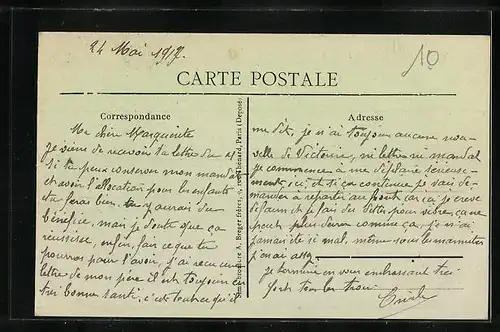 24 Mai 1917.
10
CARTE POSTALE
Correspondance
Ma chère Marguerite
je viens de recevoir ta lettre du 21
si tu peux conserver mon mandat
et avoir l'allocation pour les enfants
tu feras bien, tu y aurais du
bénéfice, mais je doute que ça
réussisse, enfin, fais ce que tu
pourras pour l'avoir, j'ai reçu une
lettre de mon père il est toujours en
très bonne santé, c'est tout ce qu'il
A. Berger frères, 9, rue Thénard, Paris (Déposé)
Adresse
me dit, je n'ai toujours aucune nou-
velle de Victoire, ni lettre ni mandat
je commence à me déplaire sérieuse-
ment ici, et si ça continue je vais de-
mander à repartir au front car ici je crève
de faim et je fais du
plus durer comme ça, je n'ai
jamais été si mal, même sous les marmites
j'en ai assez
je termine en vous embrassant très
fort tous les trois.